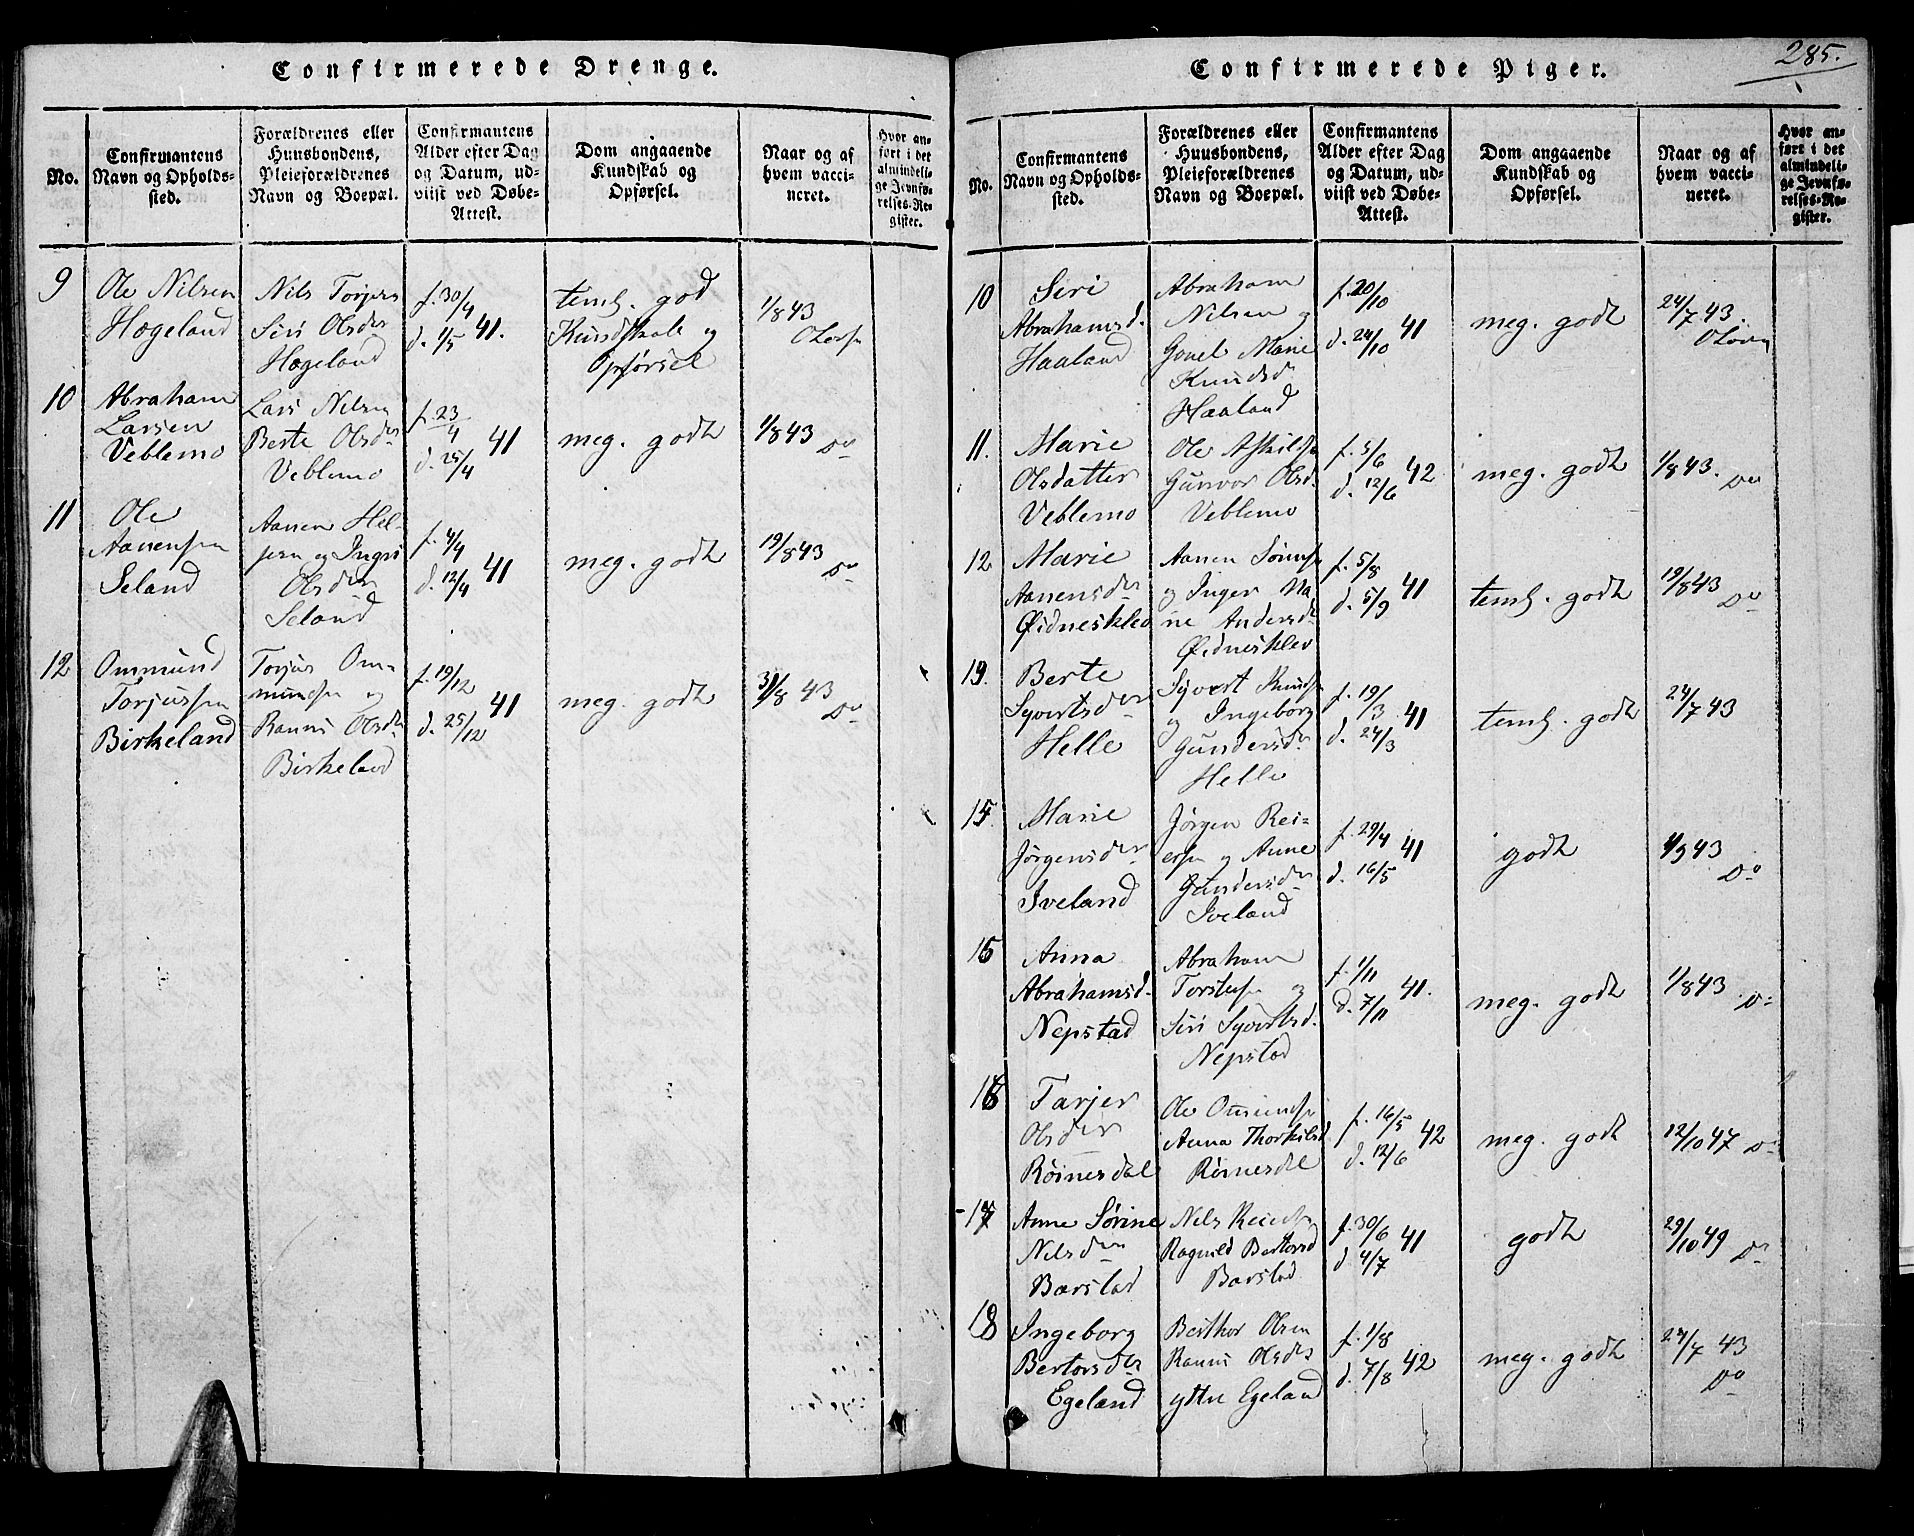 285.
Confirmerede Drenge.
No.
Confirmantens Navn og Opholds-sted.
Forældrenes eller Huusbondens, Pleieforældrenes Navn og Boepæl.
Confirmantens Alder efter Dag og Datum, ud-viist ved Døbe-Attest.
Dom angaaende Kundskab og Opførsel.
Naar og af hvem vacci-neret.
Hvor an-ført i det almindeli-ge Jevnfø-relses-Re-gister.
9
Ole Nilsen
Hægeland
Nils Torjers
Siri Olsdr
Hægeland
f. 30/4
d. 1/5 41.
teml. god
Kundskab og
Opførsel
1/8 43
10
Abraham
Larsen
Veblemo
Lars Nilsen
Berte Olsdr
Veblemo
f. 23/4
d. 25/4 41
meg. godt
1/8 43
Do
11
Ole
Aanensen
Seland
Aanen Hel-
jesen og Ingri
Olsdr
Seland
f. 4/4
d. 12/4 41
meg. godt
19/8 43
Do
12
Ommund
Torjussen
Birkeland
Torjus Om-
mundsen og
Ranni Olsdr
Birkeland
f. 19/12
d. 25/12 41
meg. godt
31/8 43
Do
Confirmerede Piger.
No.
Confirmantens Navn og Opholds-sted.
Forældrenes eller Huusbondens, Pleieforældrenes Navn og Boepæl.
Confirmantens Alder efter Dag og Datum, ud-viist ved Døbe-Attest.
Dom angaaende Kundskab og Opførsel.
Naar og af hvem vacci-neret.
Hvor an-ført i det almindeli-ge Jevnfø-relses-Re-gister.
10
Siri
Abrahamsd.
Haaland
Abraham
Nilsen og
Gonel Marie
Knudsd
Haaland
f. 20/10
d. 24/10 41
meg. godt
24/7 43.
11.
Marie
Olsdatter
Veblemo
Ole Askilds
Gunvor Olsd.
Veblemo
f. 5/6
d. 12/6 42
meg. godt
1/8 43.
Do
12
Marie
Aanensdr
Øidnesklev
Aanen Sørens
og Inger Ma
rie Andersd
Øidnesklev
f. 5/8
d. 5/9 41
teml. godt
19/8 43
Do
13
Berte
Syvertsdr
Helle
Syvert Knuds
og Ingeborg
Gundersdr
Helle
f. 19/3
d. 24/3 41
teml. godt
24/7 43
15
Marie
Jørgensdr
Iveland
Jørgen Rei-
ersen og Anne
Gundersdr
Iveland
f. 29/4
d. 16/5 41
godt
4/9 43
Do
15
Anna
Abrahamsd.
Nepstad
Abraham
Torstens og
Siri Syvertsd.
Nepstad
f. 1/11
d. 7/11 41.
meg. godt
1/8 43
Do
16
Tarjer
Olsdr
Røinesdal
Ole
Anna Thorkilsd
Røinesdal
f. 16/5
d. 12/6 42
meg. godt
12/10 47 Do
17
Anne Sørine
Nilsdr
Barstad
Nils Reiers
Ragnild Bertorsd
Barstad
f. 30/6
d 4/7 41
godt
29/10 49
Do
18
Ingeborg
Bertorsdr
Egeland
Berthor Olsen
Ranni Olsdr
yttre Egeland
f. 1/8
d. 7/8 42
meg. godt
24/7 43
Do